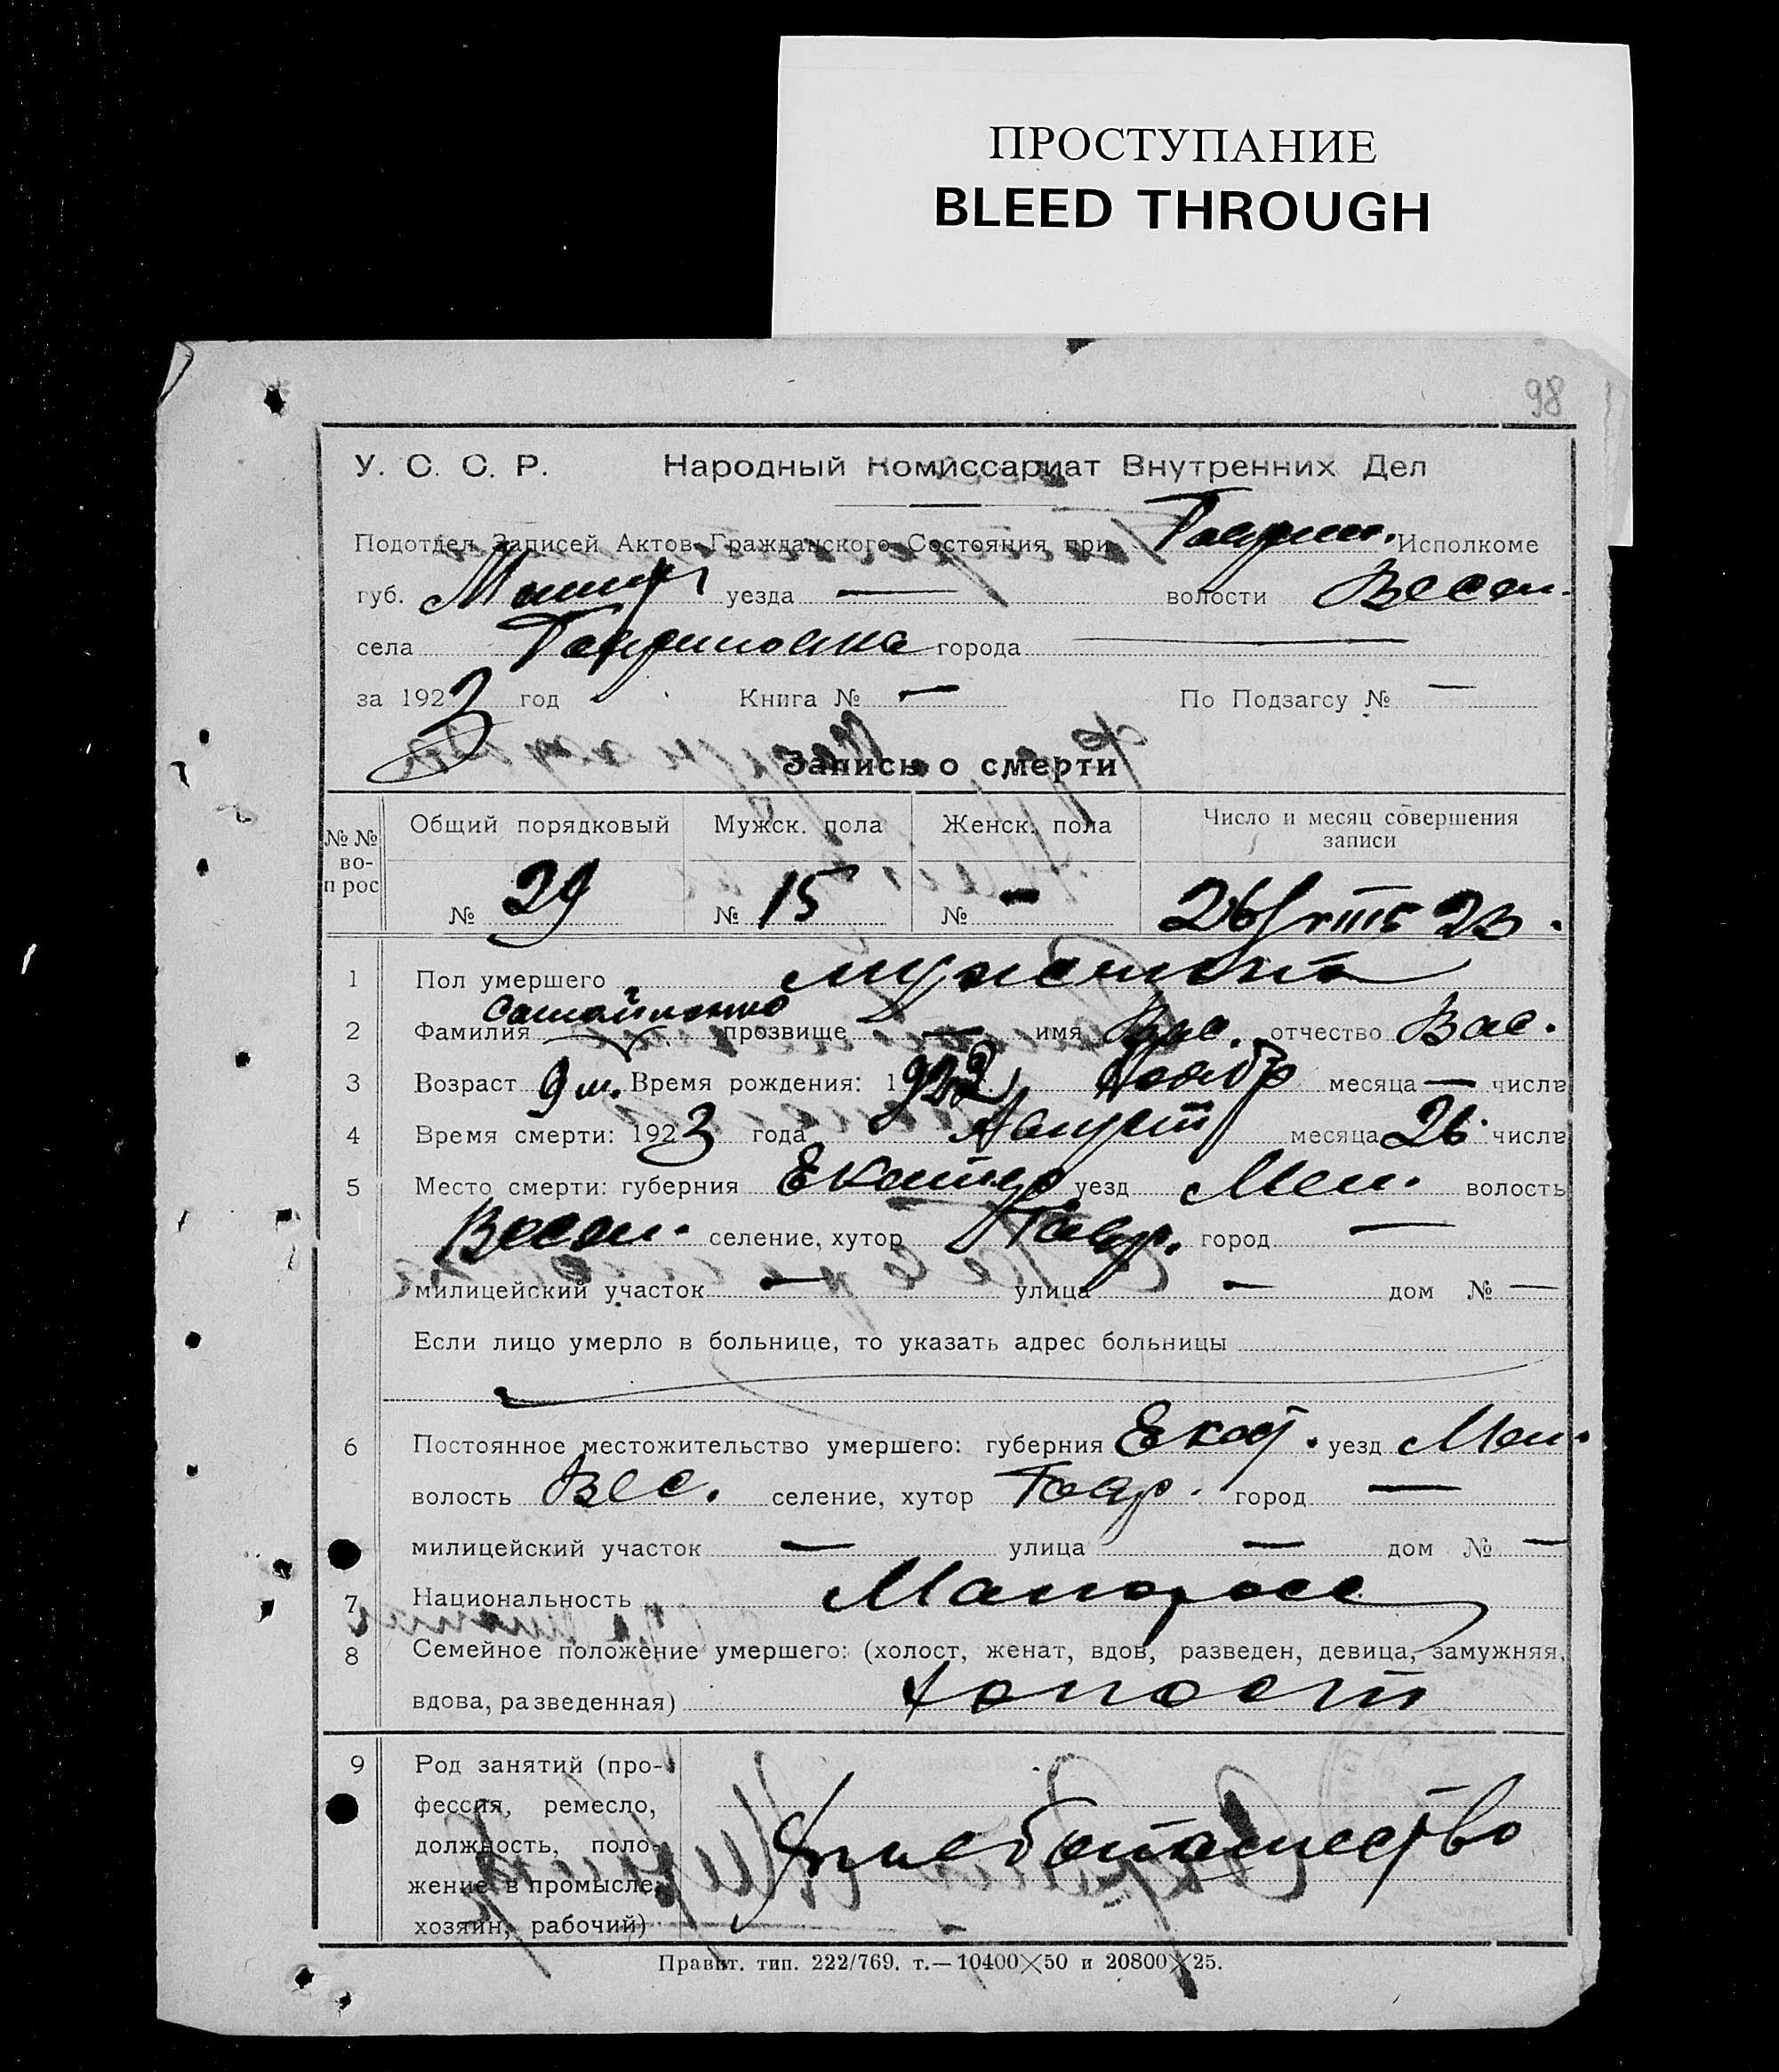 ПРОСТУПАНИЕ
BLEED THROUGH
98
У. С. С. Р. Народный Комиссариат Внутренних Дел
Подотдел Записей Актов Гражданского Состояния при Исполкоме
губ. уезда — волости Весел.
села Гавриловка города —
за 1923 год Книга № — По Подзагсу № —
Запись о смерти
№№ во-прос Общий порядковый Мужск. пола Женск. пола Число и месяц совершения записи
№ 29 № 15 № — 26/VIII 23.
1 Пол умершего мужской
2 Фамилия прозвище — имя отчество Вас.
3 Возраст 9 м. Время рождения: 1922 Ноябр месяца — числа
4 Время смерти: 1923 года Август месяца 26 числа
5 Место смерти: губерния Екатер уезд Мел. волость
Весел. селение, хутор Гавр. город —
милицейский участок — улица — дом № —
Если лицо умерло в больнице, то указать адрес больницы
6 Постоянное местожительство умершего: губерния Екат. уезд Мел.
волость Вес. селение, хутор Гавр. город —
милицейский участок — улица — дом № —
7 Национальность Малоросс
8 Семейное положение умершего: (холост, женат, вдов, разведен, девица, замужняя,
вдова, разведенная) холост
9 Род занятий (про-
фессия, ремесло,
должность, поло-
жение в промысле:
хозяин, рабочий)
хлебопашество
Правит. тип. 222/769. т.—10400×50 и 20800×25.